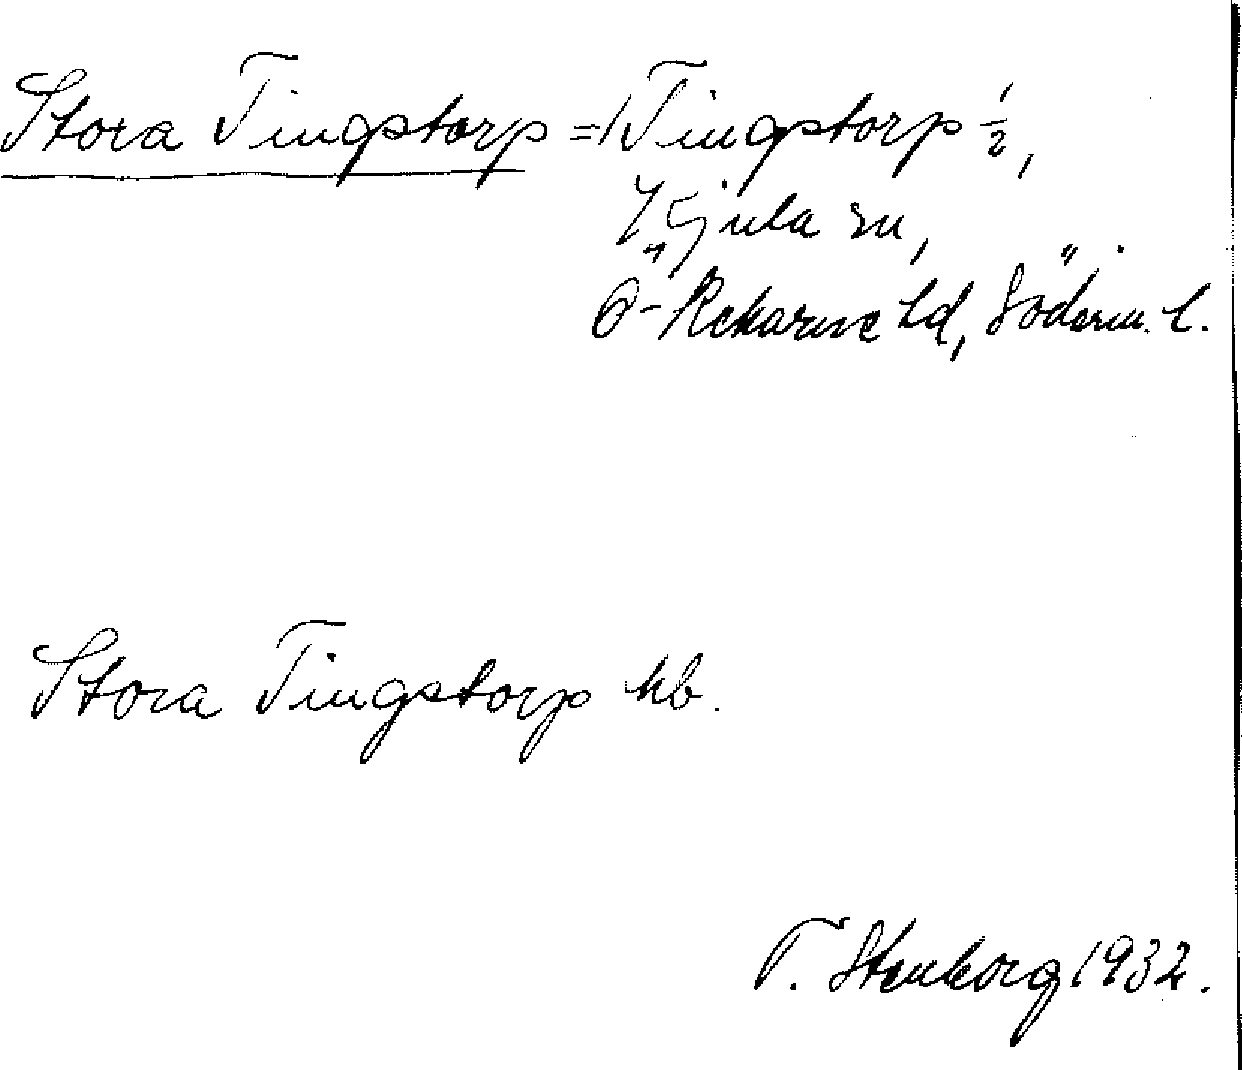 Stora Tingstorp = Tingstorp 1/2,
Kjula sn,
Ö-Rekarne hd, Söderm. l.
Stora Tingstorp kb.
T. Stenborg 1932.